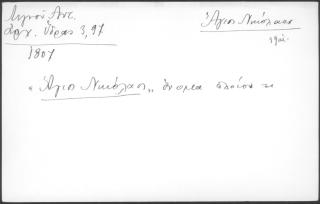 Λιγνού Αντ.
Αρχ. Ύδρας 3, 97
1807
Άγιος Νικόλαος
"Άγιος Νικόλαος,, όνομα πλοίου